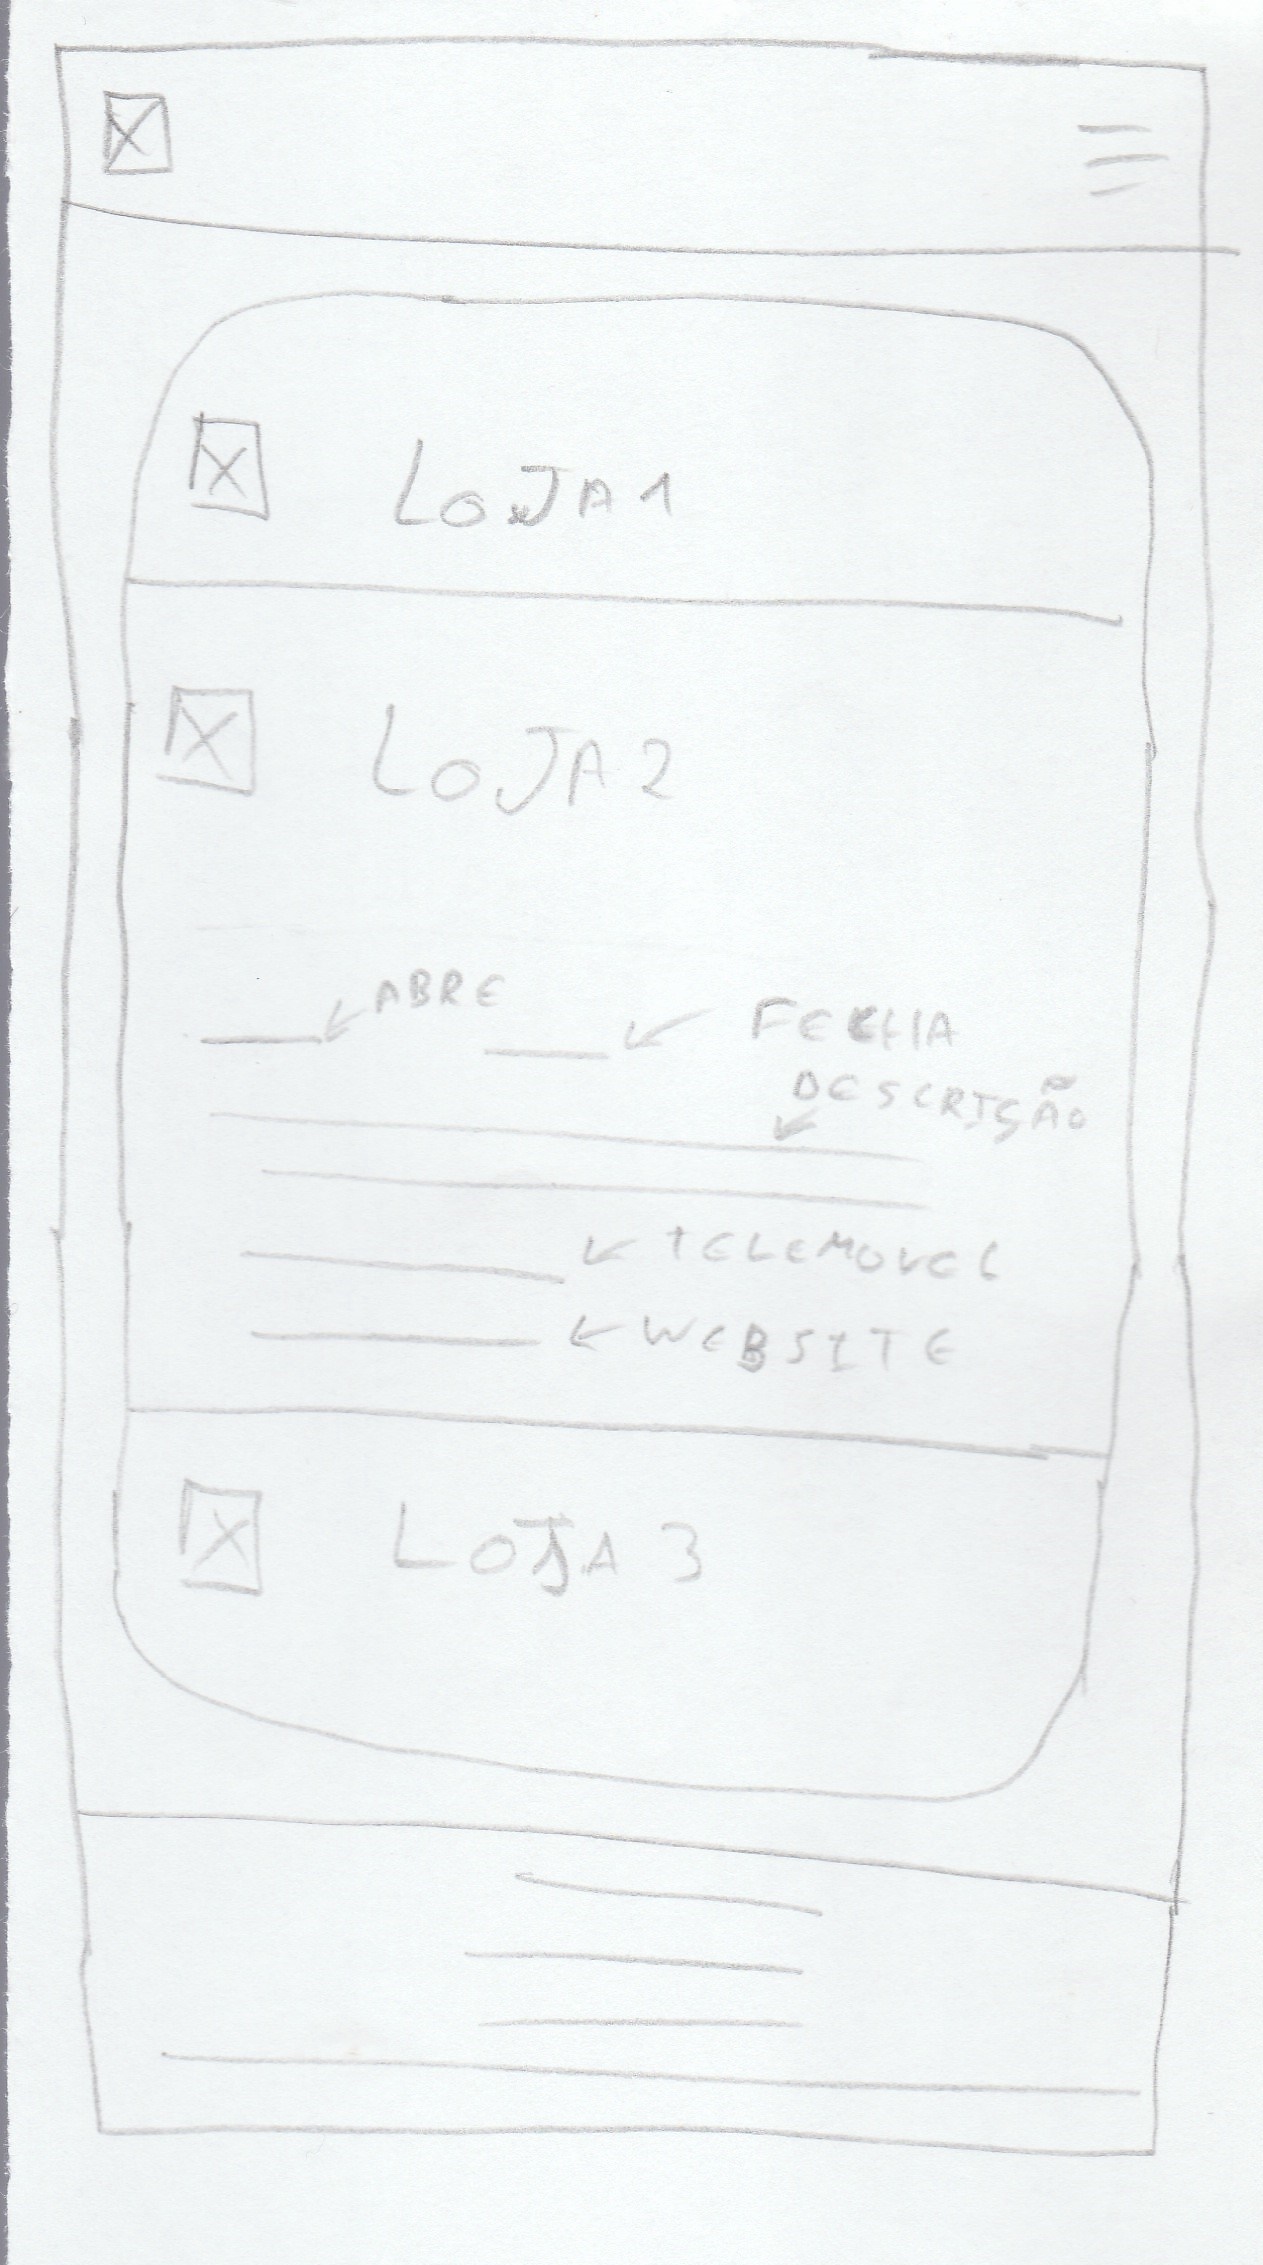 LOJA 1
LOJA 2
ABRE
FECHA
DESCRIÇÃO
TELEMOVEL
WEBSITE
LOJA 3